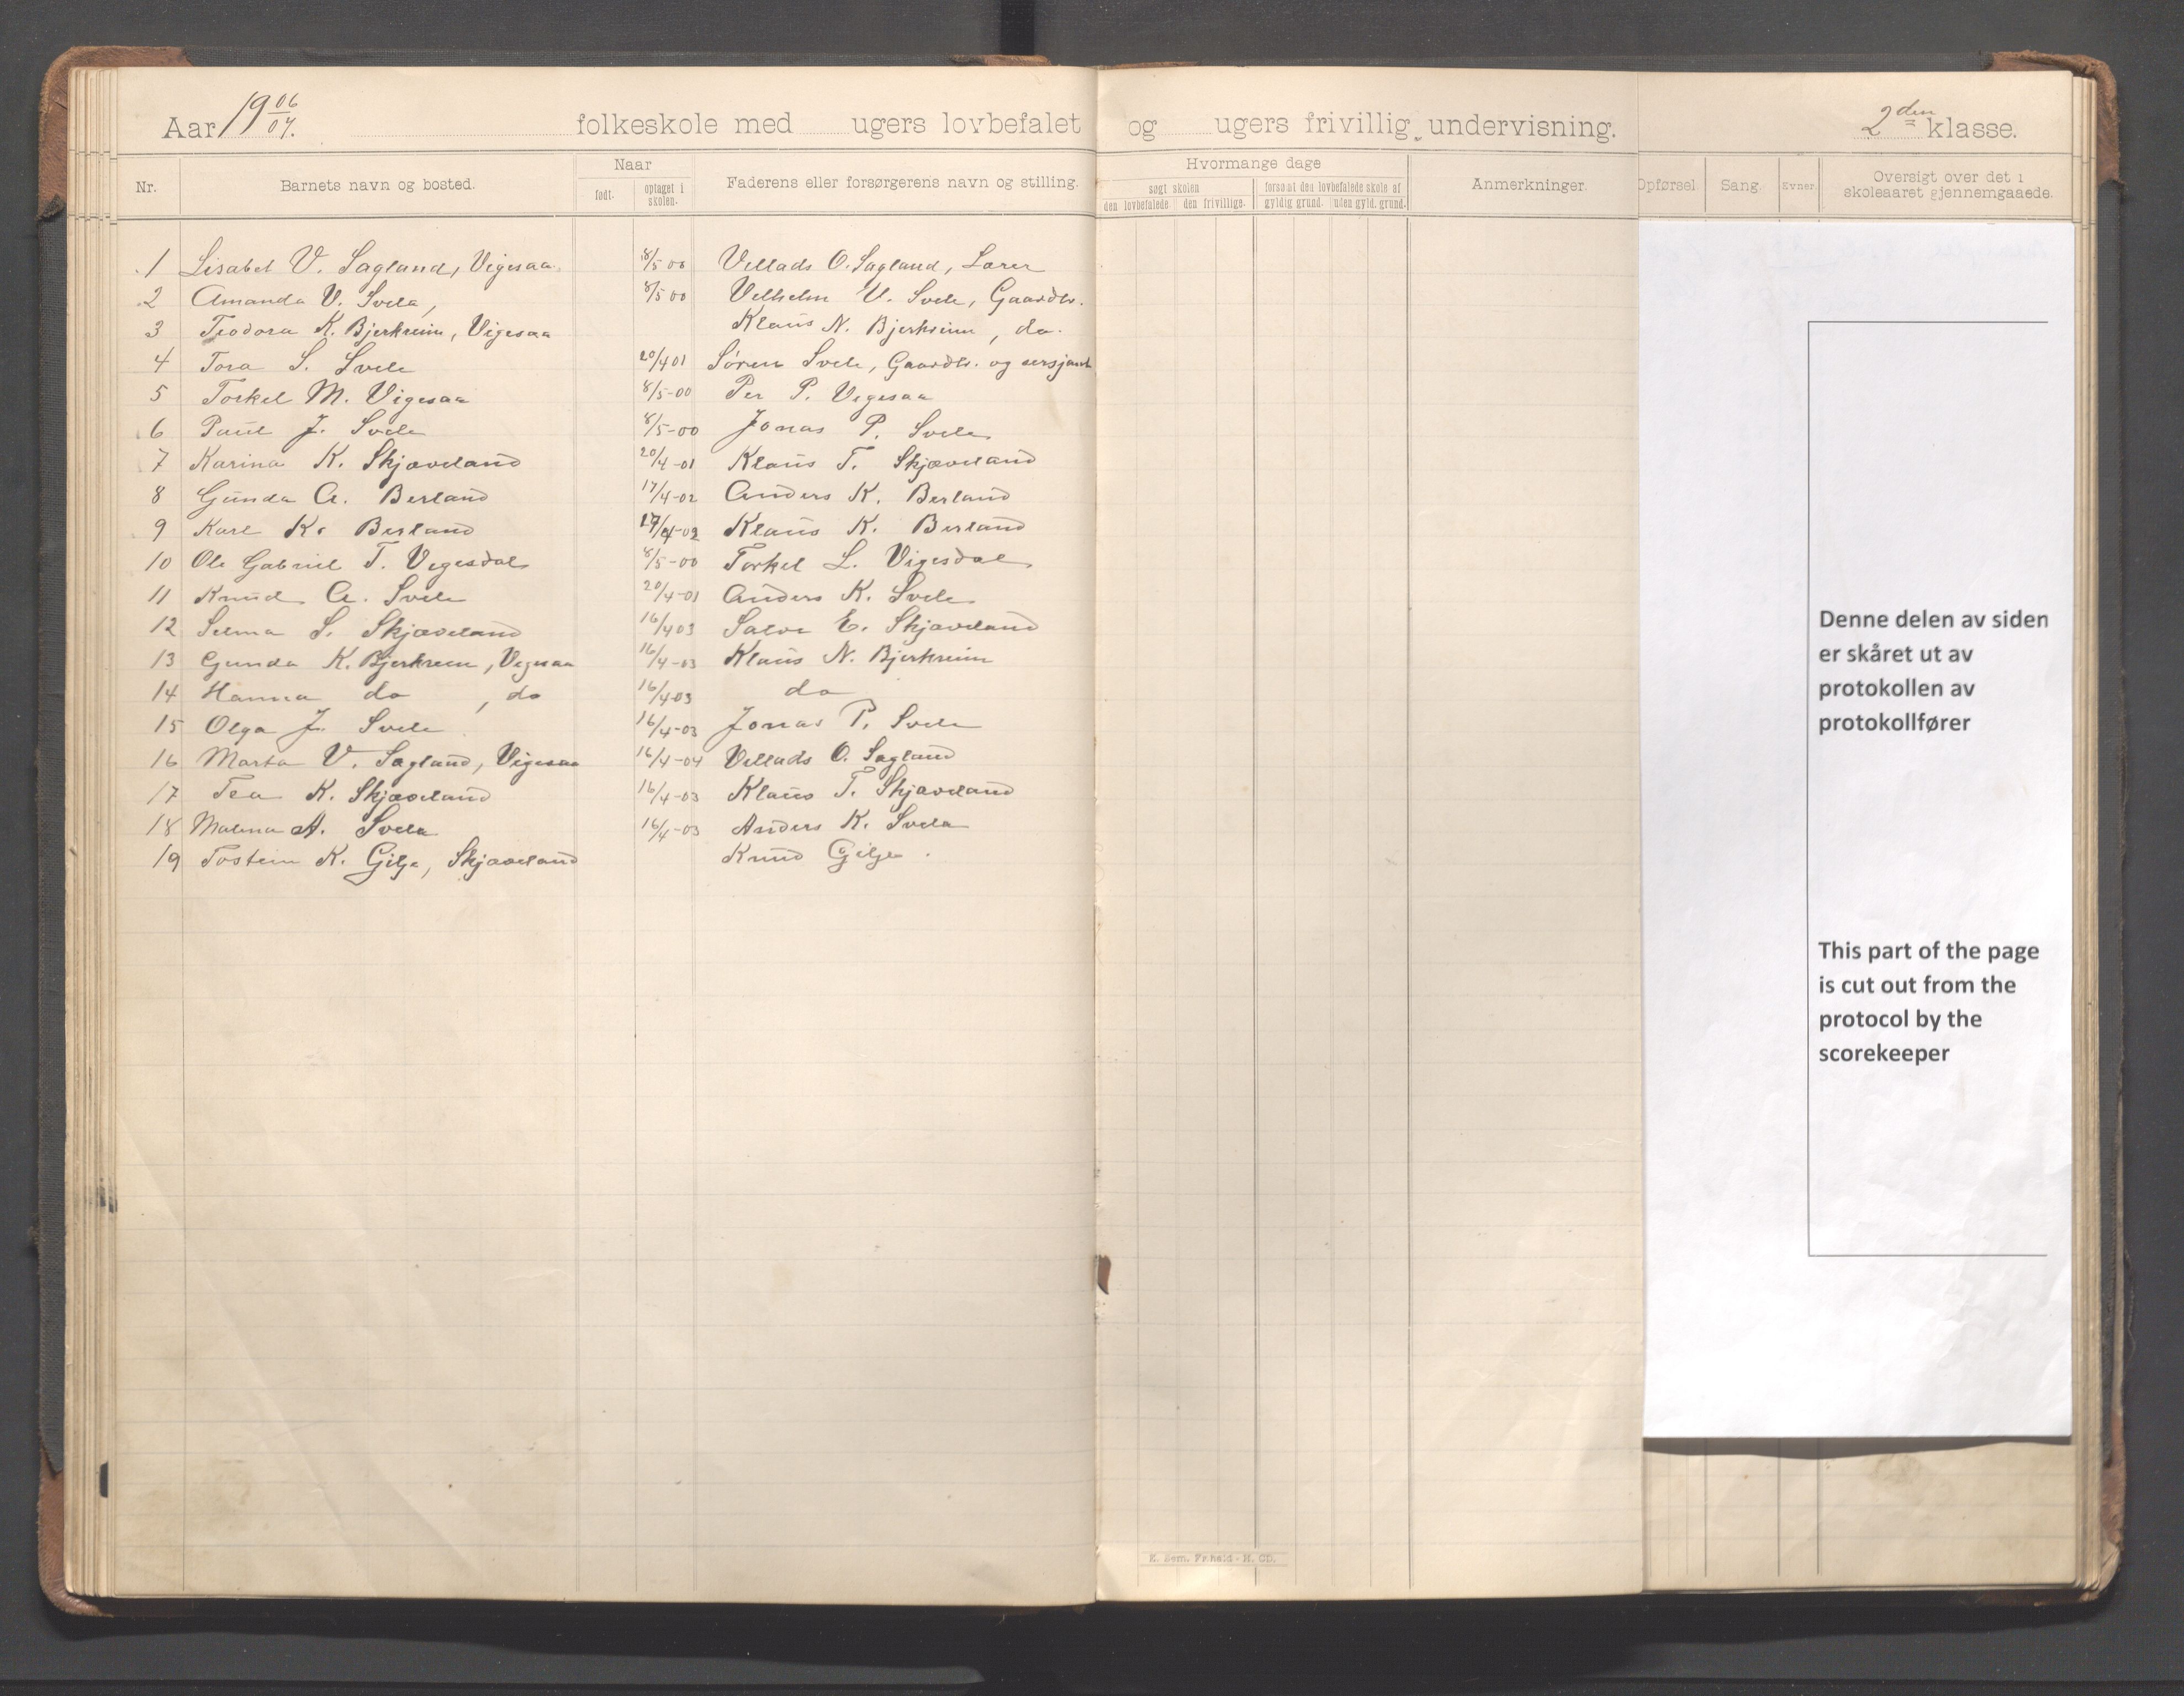 Aar 19 06/07. folkeskole med ugers lovbefalet og ugers frivillig undervisning. 2den klasse.
Nr. Barnets navn og bosted. Naar født. optaget i skolen. Faderens eller forsørgerens navn og stilling. Hvormange dage søgt skolen den lovbefalede den frivillige. forsømt den lovbefalede skole af gyldig grund. uden gyld. grund. Anmerkninger. Opførsel Sang. Evner. Oversigt over det i skoleaaret gjennemgaaede.
1 Lisabet V. Sagland, Vigesaa. 8/5 00 Vellads O. Sagland, Lærer
2 Amanda V. Svela, 8/5 00 Velhelm V. Svele, Gaardbr.
3 Teodora K. Bjerkreim, Vigesaa Klaus N. Bjerkreim, do.
4 Tora S. Svele 20/4 01 Søren Svele, Gaardbr. og sersjant
5 Torkel M. Vigesaa 8/5-00 Per P. Vegesaa
6 Paul J. Svele 8/5-00 Jonas P. Svele
7 Karina K. Skjæveland 20/4-01 Klaus T. Skjæveland
8 Gunda A. Berland 17/4-02 Anders K. Berland
9 Karl K. Berland 17/4-02 Klaus K. Berland
10 Ole Gabriel T. Vegesdal 8/5-00 Torkel L. Vigesdal
11 Knud A. Svele 20/4-01 Anders K. Svele
12 Selma S. Skjæveland 16/4 03 Salve E. Skjæveland
13 Gunda K. Bjerkreim, Vegesaa 16/4-03 Klaus N. Bjerkreim
14 Hanna do, do 16/4-03 do
15 Olga J. Svele 16/4-03 Jonas P. Svele
16 Marta V. Sagland, Vigesaa 16/4-04 Vellads O. Sagland
17 Tea K. Skjæveland 16/4-03 Klaus T. Skjæveland
18 Malena A. Svela 16/4-03 Anders K. Svela
19 Tostein K. Gilje, Skjæveland Knud Gilje.
Denne delen av siden
er skåret ut av
protokollen av
protokollfører
This part of the page
is cut out from the
protocol by the
scorekeeper